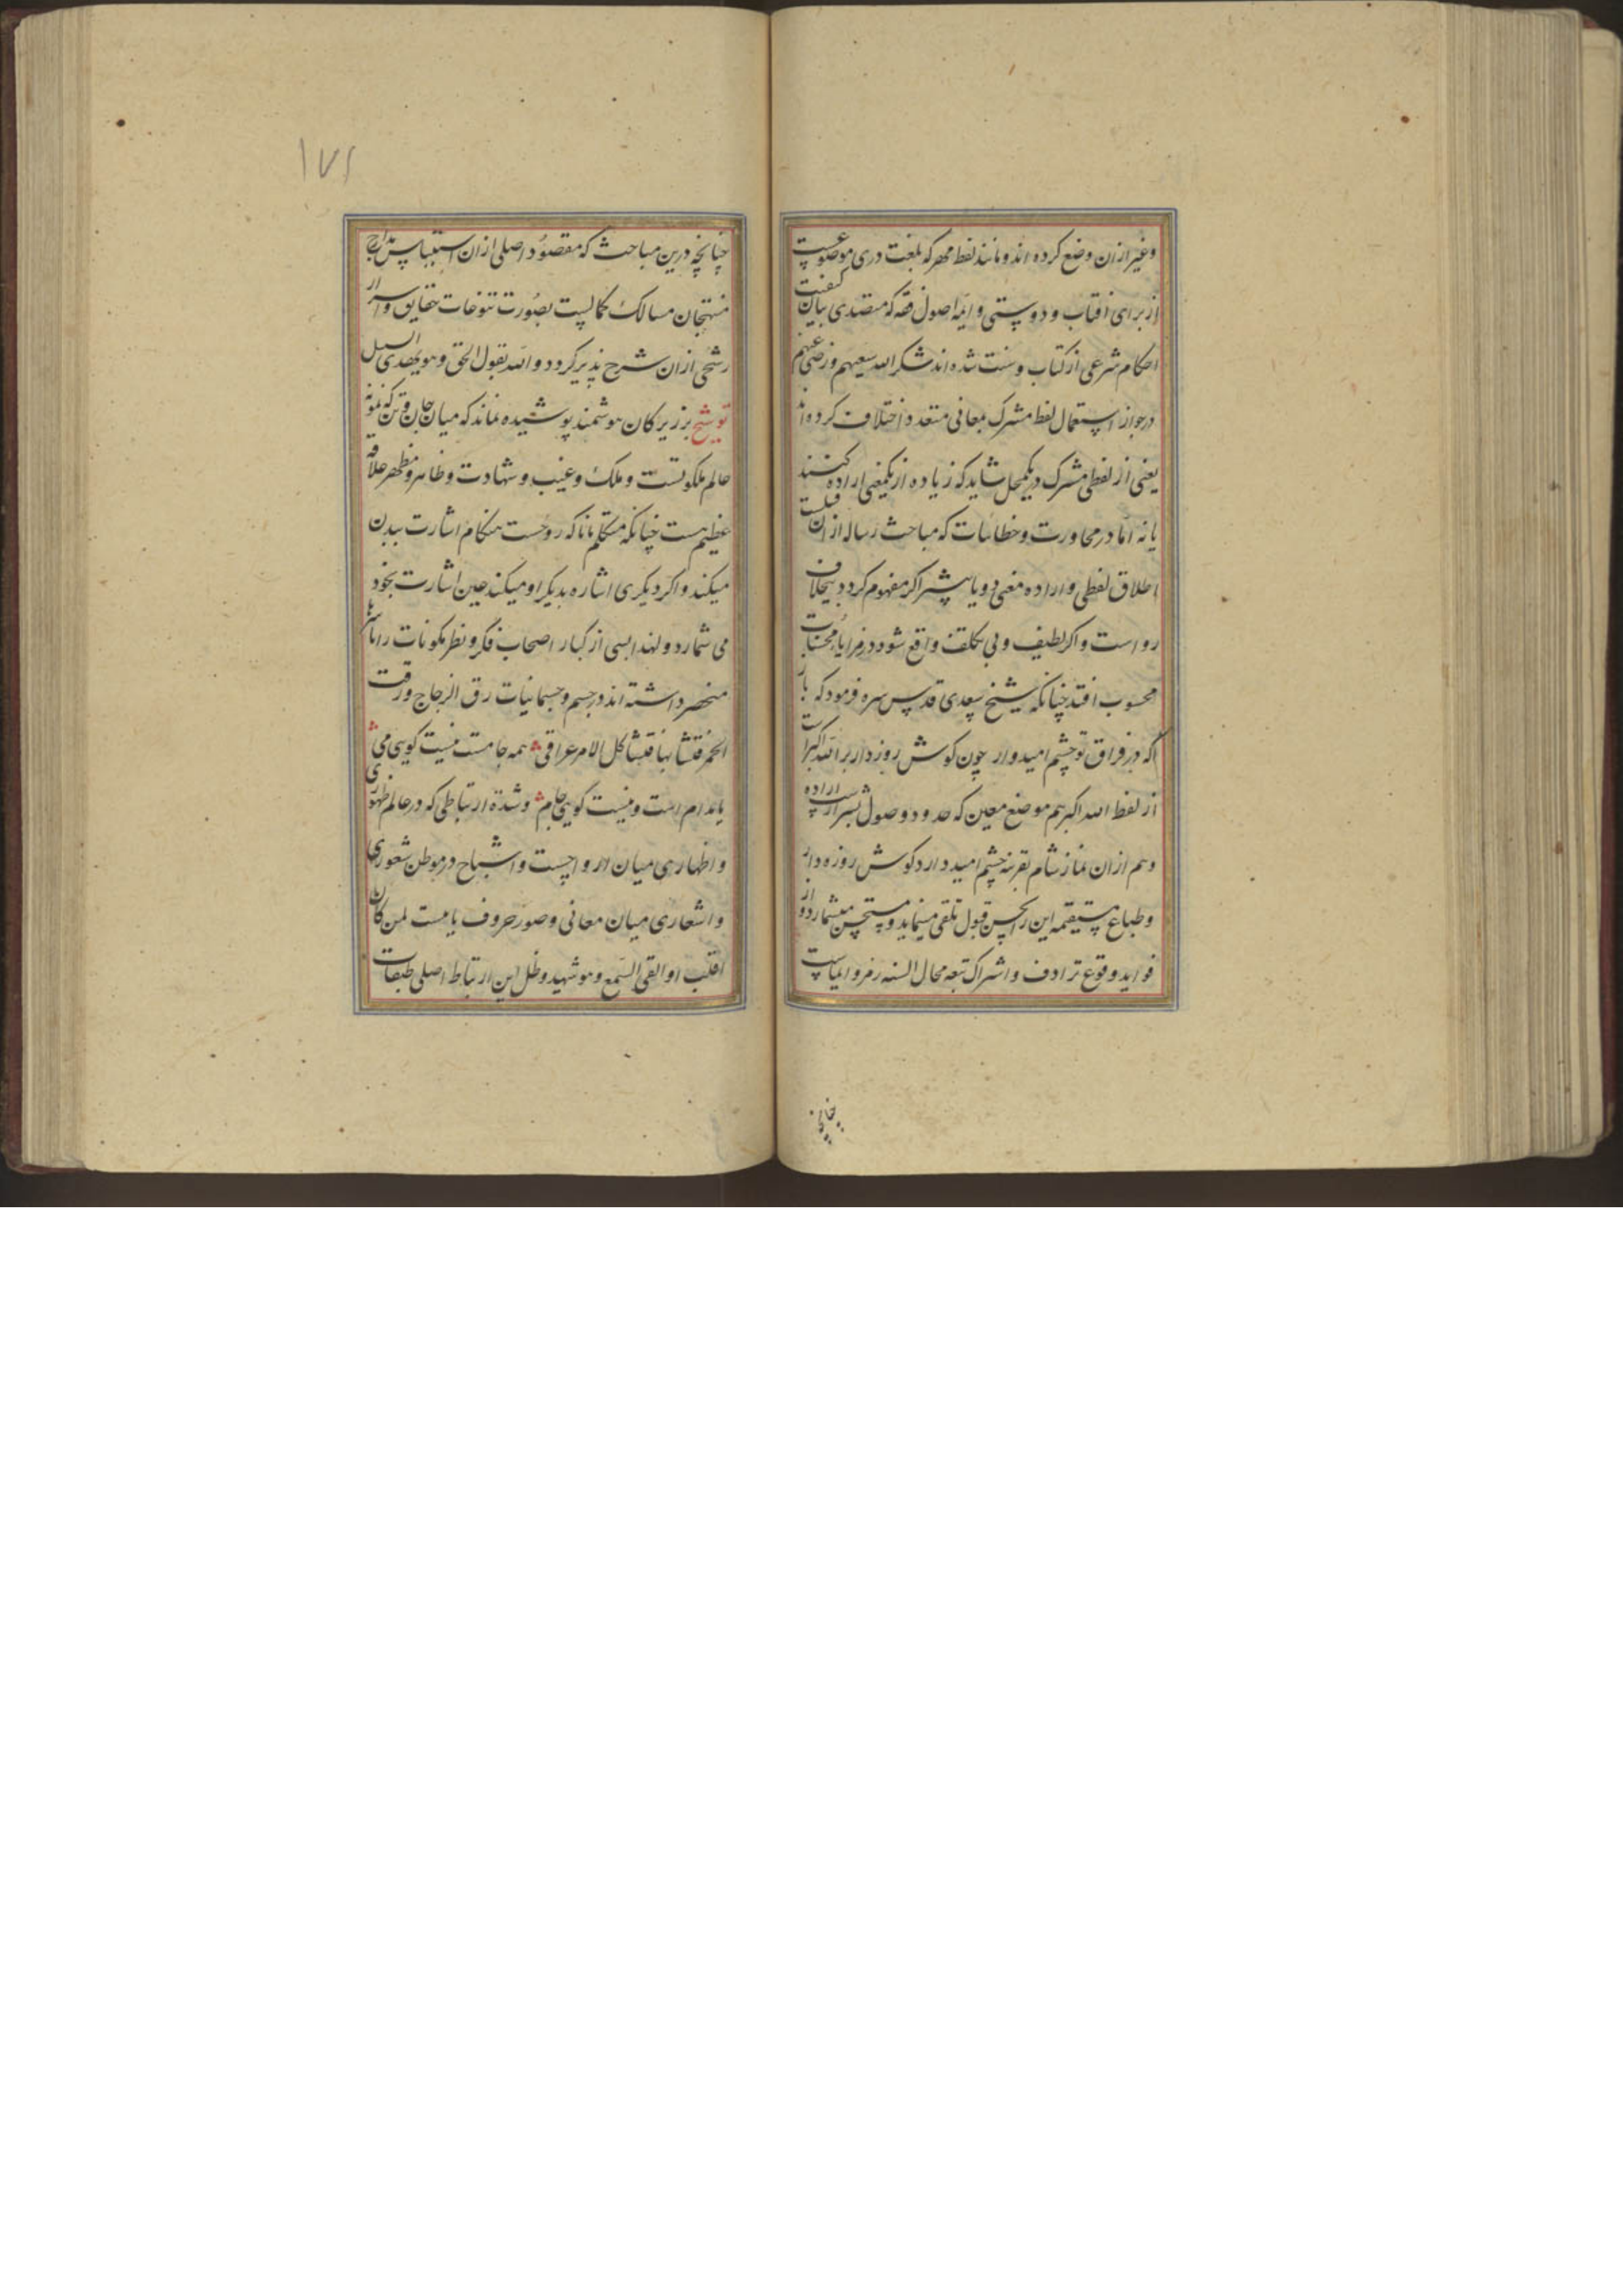 وغیر ازان وضع کرده اند و مانند لفظ مهر که بلغت دری موضوعست
از برای افتاب و دوستی و ایمه اصول فقه که متصدی بیان کیفیت
احکام شرعی از کتاب و سنت شده اند شکر الله سعیهم و رضی عنهم
در جواز استعمال لفظ مشترک بمعانی متعدد اختلاف کرده اند
یعنی از لفظی مشترک در یکمحل شاید که زیاده از یکمعنی اراده کنند
یا نه اما در محاورت و خطابیات که مباحث رساله ازان قبیلست
اطلاق لفظی و اراده معنی دو یا بیشتر اکر مفهوم کردد بیخلاف
رواست و اکر لطیف و بی تکلف واقع شود در مزایا و محسنات
محسوب افتد چنانکه شیخ سعدی قدس سره فرمود که
باز آ که در فراق تو چشم امیدوار چون کوش روزه دار بر الله اکبرست
از لفظ الله اکبر هم موضع معین که حدود وصول بشیرازست اراده
و هم ازان نماز شام بقرینه چشم امیددار و کوش روزه دار
و طباع مستقیمه این را بحسن قبول تلقی مینماید و مستحسن میشمارد و از
فواید وقوع ترادف و اشتراک توسعه مجال السنه رمز و ایماست
چنانچه
۱۷۱
چنانچه درین مباحث که مقصود اصلی ازان استیناس مدارج
منتهجان مسالک کمالست بصورت تنوعات حقایق و اسرار
رشحی ازان شرح پذیر کردد و الله یقول الحق و هو یهدی السبیل
توشیح بر زیرکان هوشمند پوشیده نماند که میان جان و تن که نمونه
عالم ملکوتست و ملک و غیب و شهادت و ظاهر و مظهر علاقه
عظیم هست چنانکه متکلم بانا که روحست هنکام اشارت ببدن
میکند و اکر دیکری اشاره بدیکر او میکند عین اشارت بخود
می شمارد و لهذا بسی از کبار اصحاب فکر و نظر مکونات را
منحصر داشته اند در جسم و جسمانیات رق الزجاج و رقت
الخمر فتشابها فتشاکل الامر عراقی همه جامست نیست کویی می
یا مدام است و نیست کویی جام و شدة ارتباطی که در عالم ظهوری
و اظهاری میان ارواحست و اشباح در موطن شعوری
و اشعاری میان معانی و صور حروف یا هست لمن کان له
قلب او القی السمع و هو شهید و ظل این ارتباط اصلی طبقات